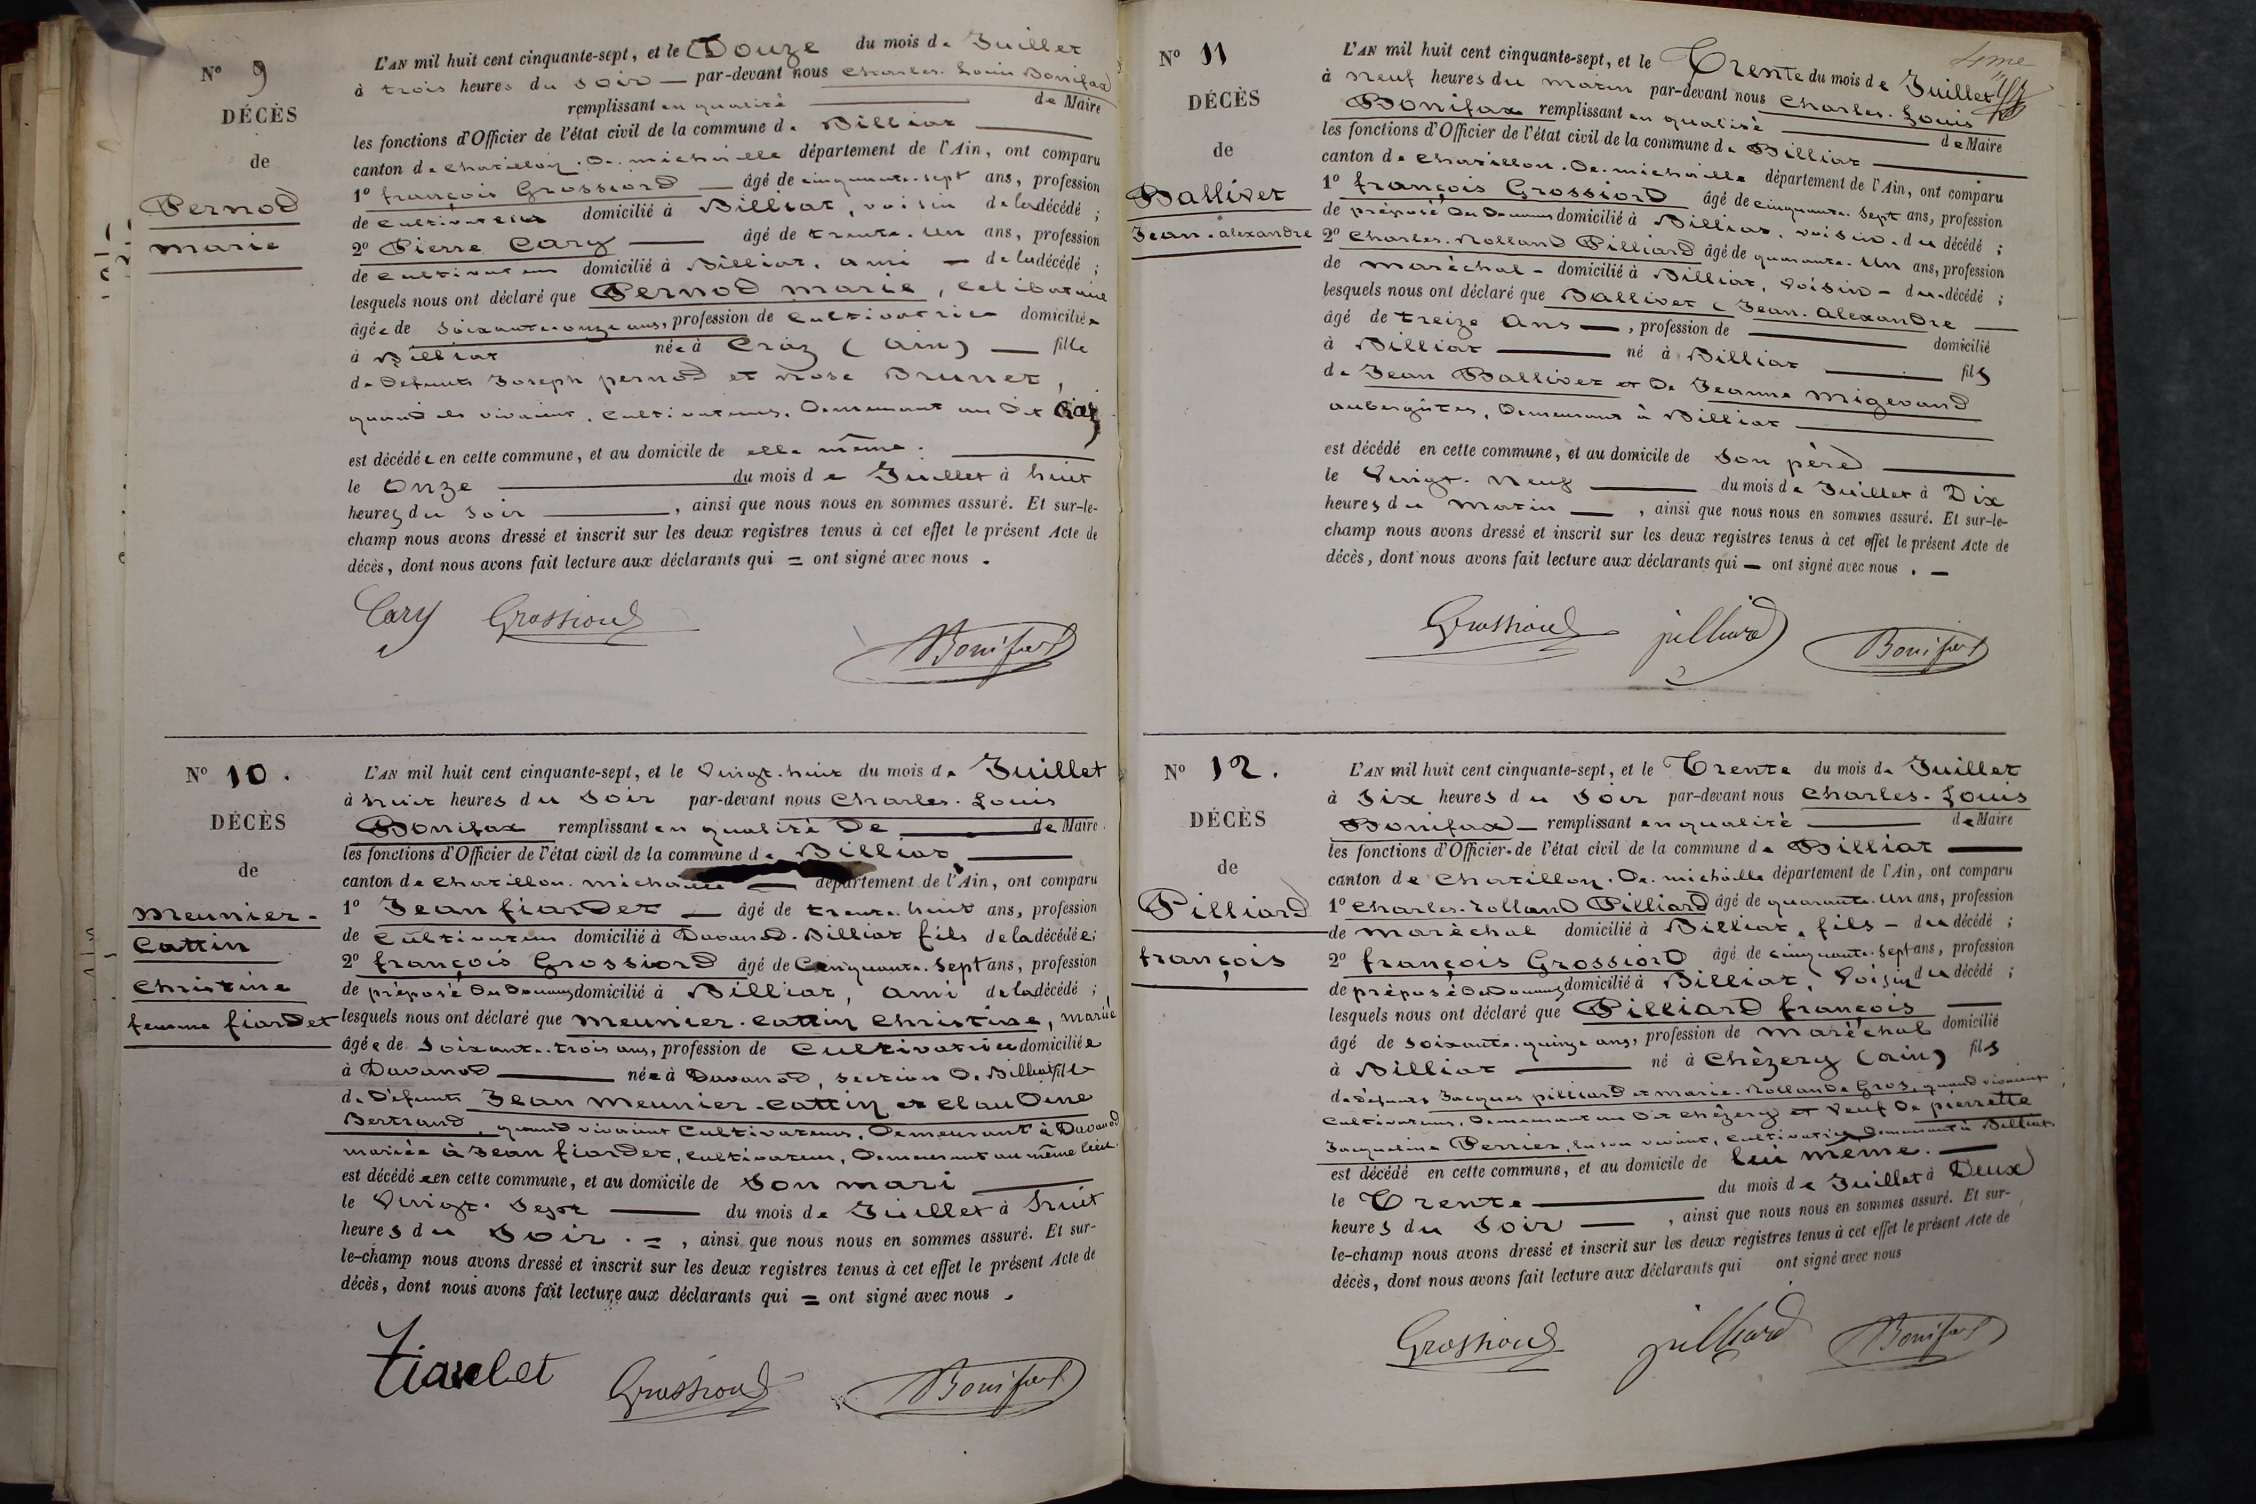 N° 9
DÉCÈS
de
Pernod
marie
L'AN mil huit cent cinquante-sept, et le Douze du mois de Juillet
à trois heures du soir — par-devant nous Charles-Louis Bonifax
remplissant en qualité — de Maire
les fonctions d'Officier de l'état civil de la commune de Billiat —
canton de Chatillon-De-michaille département de l'Ain, ont comparu
1° françois Grossiord — âgé de cinquante-sept ans, profession
de cultivateur domicilié à Billiat, voisin de la décédé ;
2° Pierre Cary — âgé de trente-un ans, profession
de cultivateur domicilié à Billiat, ami — de la décédé ;
lesquels nous ont déclaré que Pernod marie, Celibataire
âgée de soixante-onze ans, profession de Cultivatrice domiciliée
à Billiat née à Craz (Ain) — fille
de Defunts Joseph pernod et Rose Brunet,
quand ils vivaient, Cultivateurs, Demeurant au Dit Craz
est décédée en cette commune, et au domicile de elle même. —
le Onze — du mois de Juillet à huit
heures du soir —, ainsi que nous nous en sommes assuré. Et sur-le-
champ nous avons dressé et inscrit sur les deux registres tenus à cet effet le présent Acte de
décès, dont nous avons fait lecture aux déclarants qui = ont signé avec nous .
Cary Grossiord Bonifax
N° 10.
DÉCÈS
de
Meunier-
Cattin
Christine
femme fiardet
L'AN mil huit cent cinquante-sept, et le Vingt-huit du mois de Juillet
à huit heures du soir par-devant nous Charles-Louis
Bonifax remplissant en qualité De — de Maire
les fonctions d'Officier de l'état civil de la commune de Billiat —
canton de Chatillon-michaille — département de l'Ain, ont comparu
1° Jean fiardet — âgé de trente-huit ans, profession
de Cultivateur domicilié à Davanod-Billiat fils de la décédée;
2° françois Grossiord âgé de Cinquante-Sept ans, profession
de préposé Des Douanes domicilié à Billiat, ami de la décédé ;
lesquels nous ont déclaré que Meunier-Cattin Christine, mariée
âgée de soixante-trois ans, profession de Cultivatrice domiciliée
à Davanod — née à Davanod, section De Billiat fille
de Défunts Jean Meunier-Cattin et Claudine
Bertrand, quand vivaient Cultivateurs, Demeurant à Davanod
mariée à Jean fiardet, cultivateur, Demeurant au même lieu.
est décédée en cette commune, et au domicile de Son mari —
le Vingt-Sept — du mois de Juillet à huit
heures du Soir. =, ainsi que nous nous en sommes assuré. Et sur-
le-champ nous avons dressé et inscrit sur les deux registres tenus à cet effet le présent Acte de
décès, dont nous avons fait lecture aux déclarants qui = ont signé avec nous .
fiardet Grossiord Bonifax
4me
N° 11
DÉCÈS
de
Ballivet
Jean-alexandre
L'AN mil huit cent cinquante-sept, et le Trente du mois de Juillet
à neuf heures du matin par-devant nous Charles-Louis
Bonifax remplissant en qualité — de Maire
les fonctions d'Officier de l'état civil de la commune de Billiat —
canton de Chatillon-De-michaille département de l'Ain, ont comparu
1° françois Grossiord âgé de cinquante-Sept ans, profession
de préposé Des Douanes domicilié à Billiat, voisin du décédé ;
2° Charles-Rolland Pilliard âgé de quarante-un ans, profession
de maréchal - domicilié à Billiat, Voisin - du décédé ;
lesquels nous ont déclaré que Ballivet Jean-Alexandre —
âgé de treize Ans —, profession de — domicilié
à Billiat — né à Billiat — fils
de Jean Ballivet et De Jeanne Migevand
aubergistes, Demeurant à Billiat —
est décédé en cette commune, et au domicile de Son père —
le Vingt-neuf — du mois de Juillet à Dix
heures du matin —, ainsi que nous nous en sommes assuré. Et sur-le-
champ nous avons dressé et inscrit sur les deux registres tenus à cet effet le présent Acte de
décès, dont nous avons fait lecture aux déclarants qui — ont signé avec nous . —
Grossiord pilliard Bonifax
N° 12.
DÉCÈS
de
Pilliard
françois
L'AN mil huit cent cinquante-sept, et le Trente du mois de Juillet
à Six heures du Soir par-devant nous Charles-Louis
Bonifax — remplissant en qualité — de Maire
les fonctions d'Officier de l'état civil de la commune de Billiat —
canton de Chatillon-De-michaille département de l'Ain, ont comparu
1° Charles-rolland Pilliard âgé de quarante-un ans, profession
de maréchal domicilié à Billiat, fils - du décédé ;
2° françois Grossiord âgé de cinquante-sept ans, profession
de préposé Des Douanes domicilié à Billiat, Voisin du décédé ;
lesquels nous ont déclaré que Pilliard françois —
âgé de soixante-quinze ans, profession de maréchal domicilié
à Billiat — né à Chèzery (ain) fils
de Défunts Jacques pilliard et marie-Rollande Gros, quand vivaient
Cultivateurs, Demeurant au Dit Chézery et Veuf De pierrette
Jacqueline Perrier, en son vivant, Cultivatrice Demeurant à Billiat
est décédé en cette commune, et au domicile de lui même. —
le Trente — du mois de Juillet à Deux
heures du Soir —, ainsi que nous nous en sommes assuré. Et sur-
le-champ nous avons dressé et inscrit sur les deux registres tenus à cet effet le présent Acte de
décès, dont nous avons fait lecture aux déclarants qui ont signé avec nous
Grossiord pilliard Bonifax